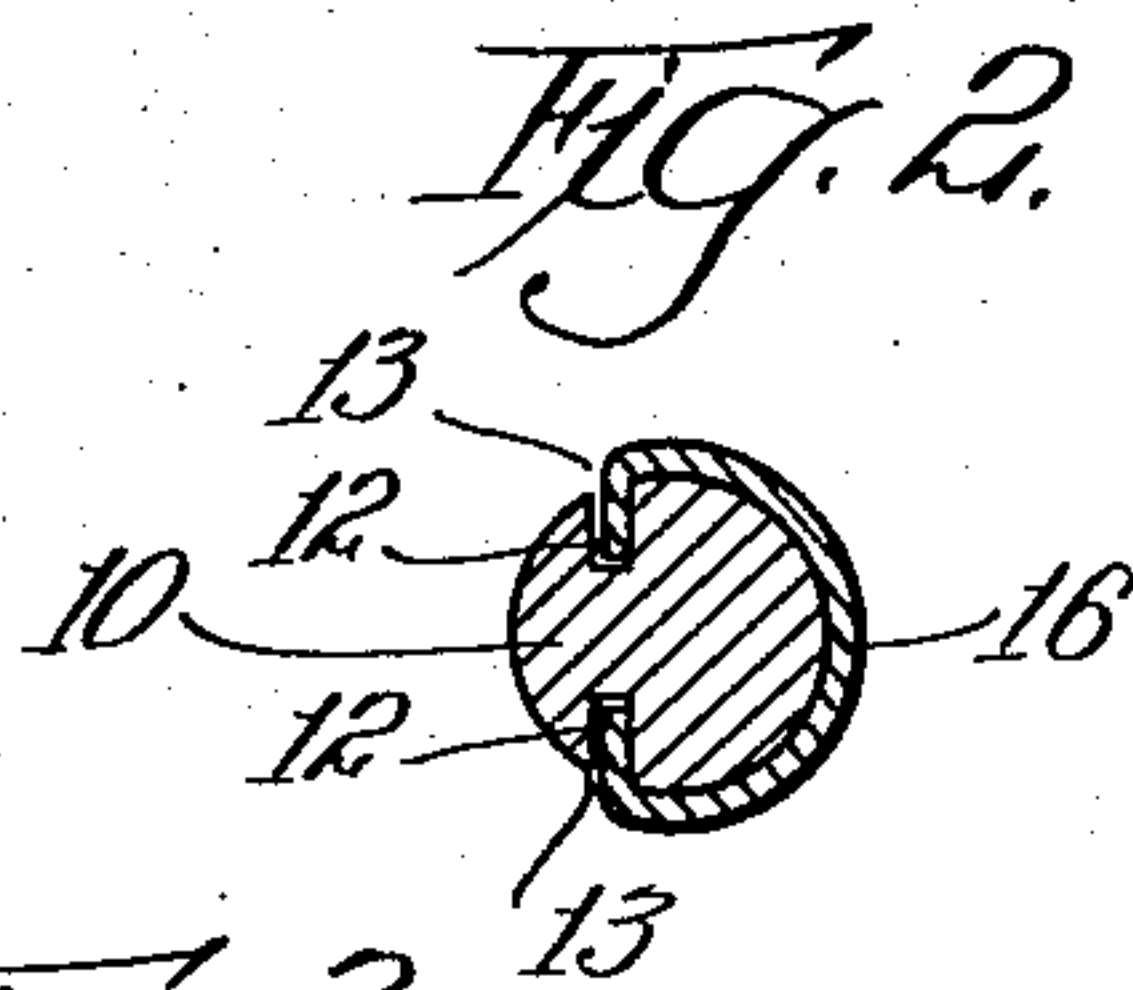 Fig. 2.
13
12
10
16
12
13